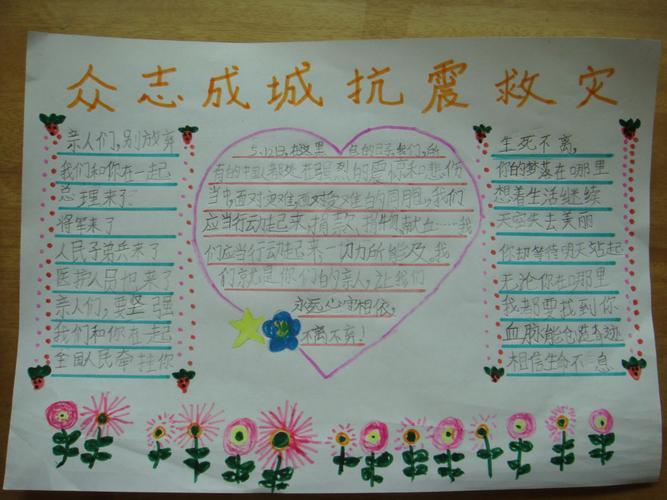 众志成城抗震救灾
亲人们,别放弃
我们和你在一起
总理来了
将军来了
人民子弟兵来了
医护人员也来了
亲人们,要坚强
我们和你在一起
全国人民牵挂你
5.12日,在这里
有的中国都处在强烈的震惊和悲伤
当中,面对灾难,面对受难的同胞,我们
应当行动起来,捐款、捐物、献血……我
们应当行动起来一切力所能及。我
们就是你们的亲人,让我们
永死心相依,
不离不弃!
生死不离,
你的梦落在哪里
想着生活继续
天空失去美丽
你却等待明天站起
无论你在哪里
我都要找到你
血脉能创造奇迹
相信生命不息